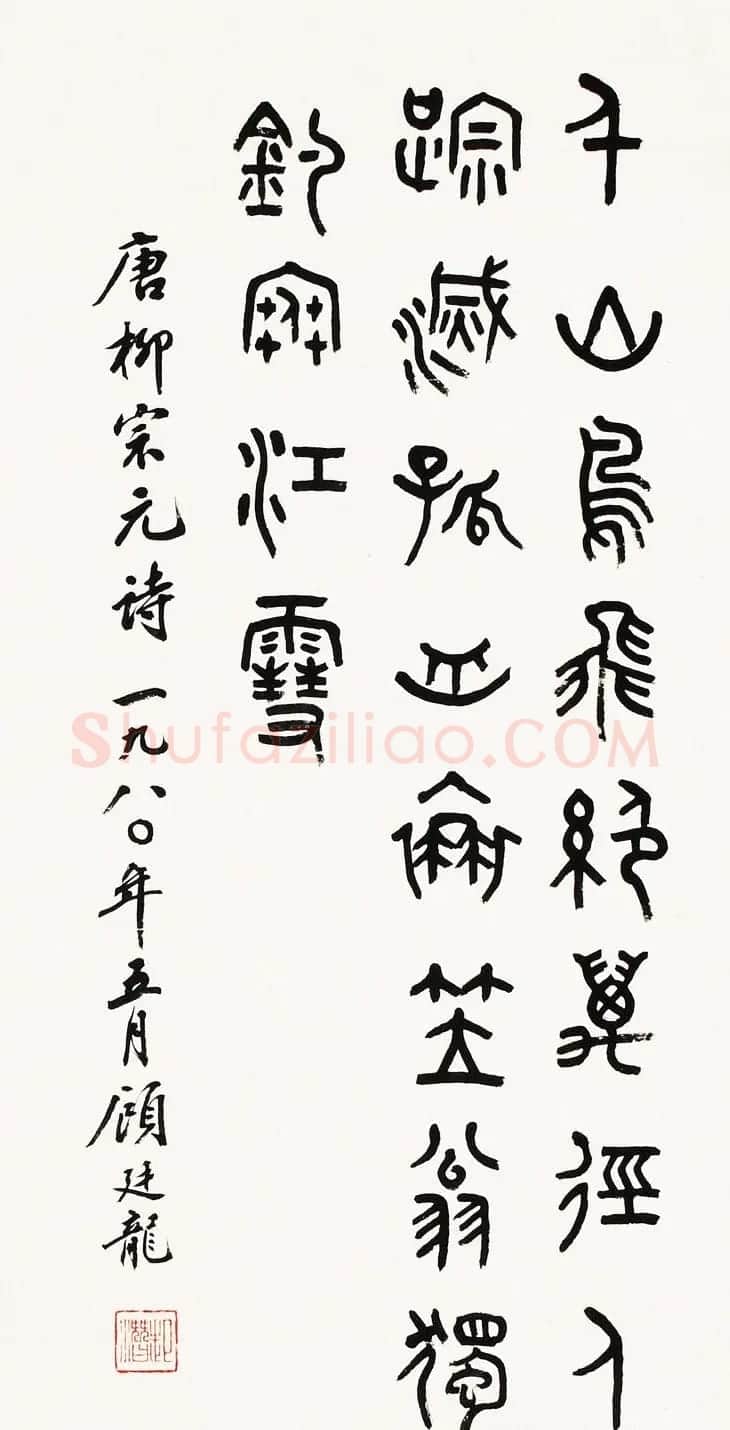 千山鳥飛絕萬徑人
踪滅孤舟蓑笠翁獨
釣寒江雪
唐柳宗元诗 一九八〇年五月顧廷龍
起潛
Shufaziliao.COM